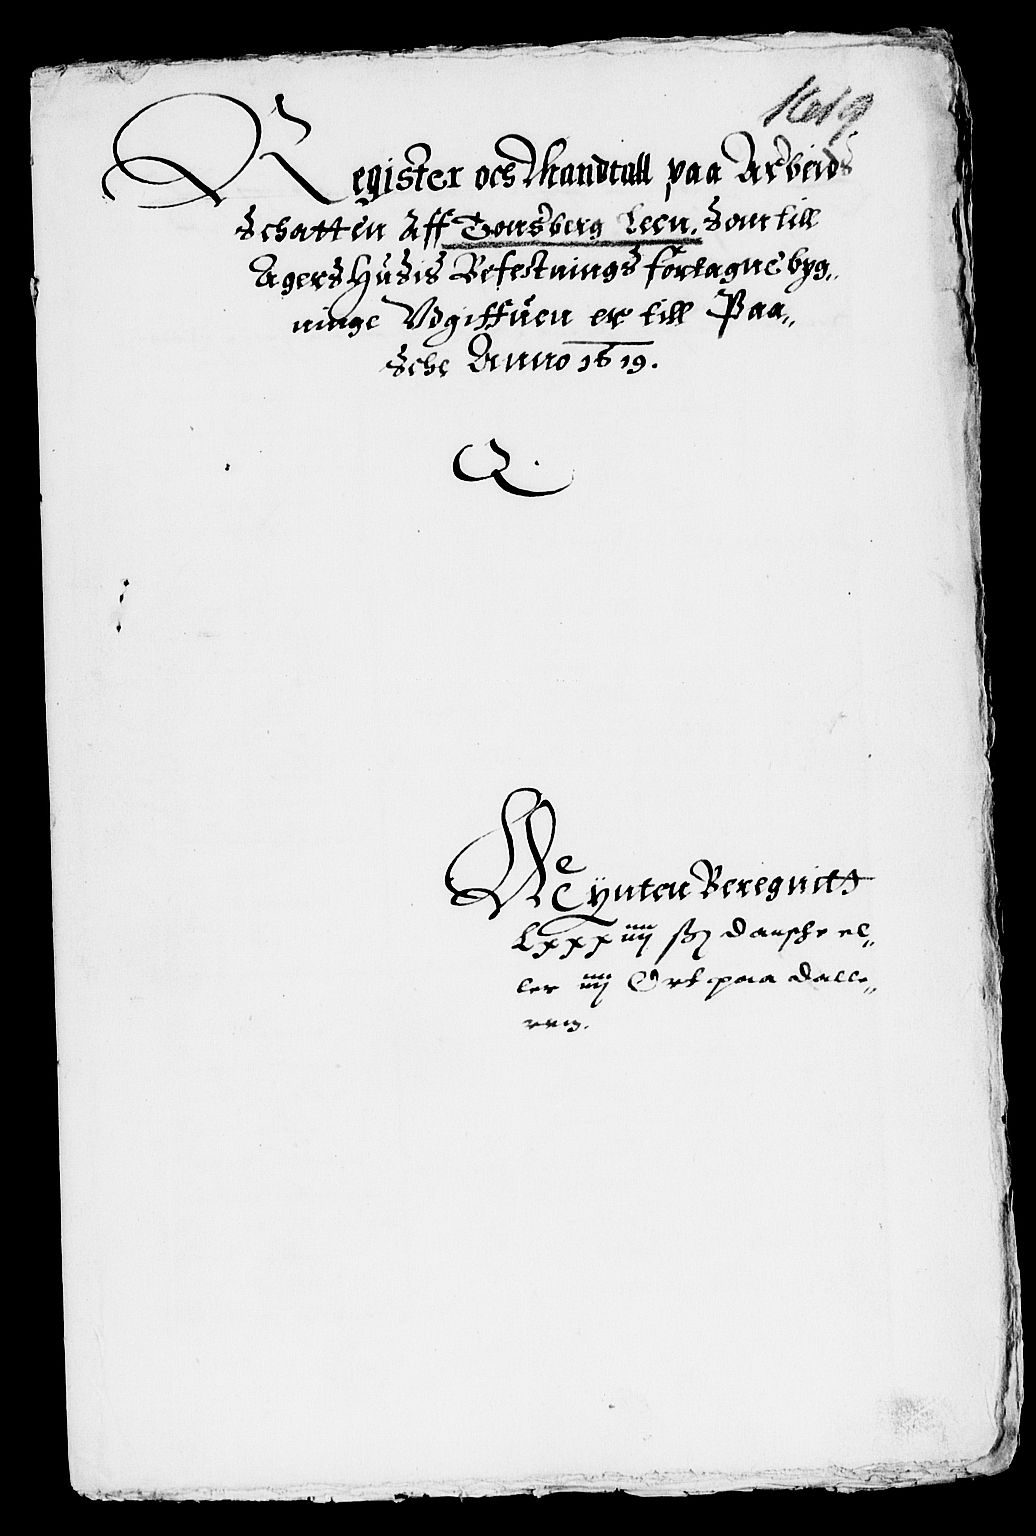 1619
Register och Mandtall paa Arbeids
Schatten Aff Tonsberg Leen. Som till
Agershusis Befestnings förtagne byg„
ninge Vdgiffuen er till Paa„
sche Anno 1619.
Mÿnten Beregnitt
Lxxx iiij ſß danſche el„
ler iiij Ort paa dalle„
ren.